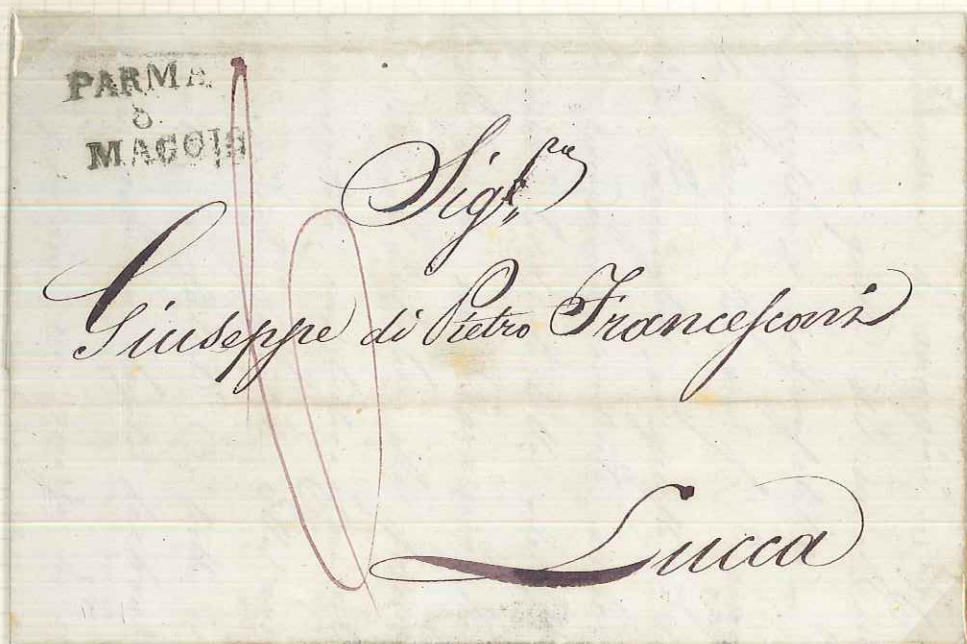 PARMA
MAGGIO
Sig.re
Giuseppe di Pietro Francesconi
Lucca